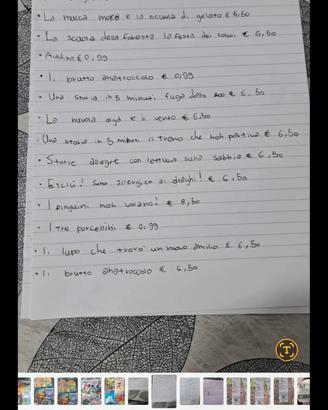 • La mucca moka e la scuola di gelato € 6,50
• La scuola della foresta la festa dei colori € 6,50
• Aladino € 0,99
• Il brutto anatroccolo € 0,99
• Una storia in 5 minuti fuga dallo zoo € 6,50
• La nuvola olga e il vento € 6,50
• Una storia in 5 minuti il treno che non partiva € 6,50
• Storie allegre con lettura sulla sabbia € 6,50
• Etciù! Sono allergico ai draghi! € 6,50
• I pinguini non volano! € 8,50
• I tre porcellini € 0,99
• Il lupo che trovò un nuovo amico € 6,50
• Il brutto anatroccolo € 6,50